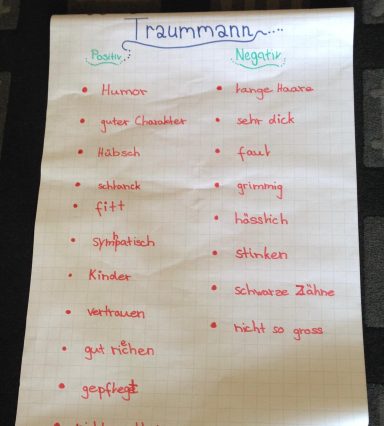 Traummann
Positiv
Humor
guter Charakter
Hübsch
schlanck
fitt
symphatisch
Kinder
vertrauen
gut riechen
gepflegt
Negativ
lange Haare
sehr dick
faul
grimmig
hässlich
stinken
schwarze Zähne
nicht so gross